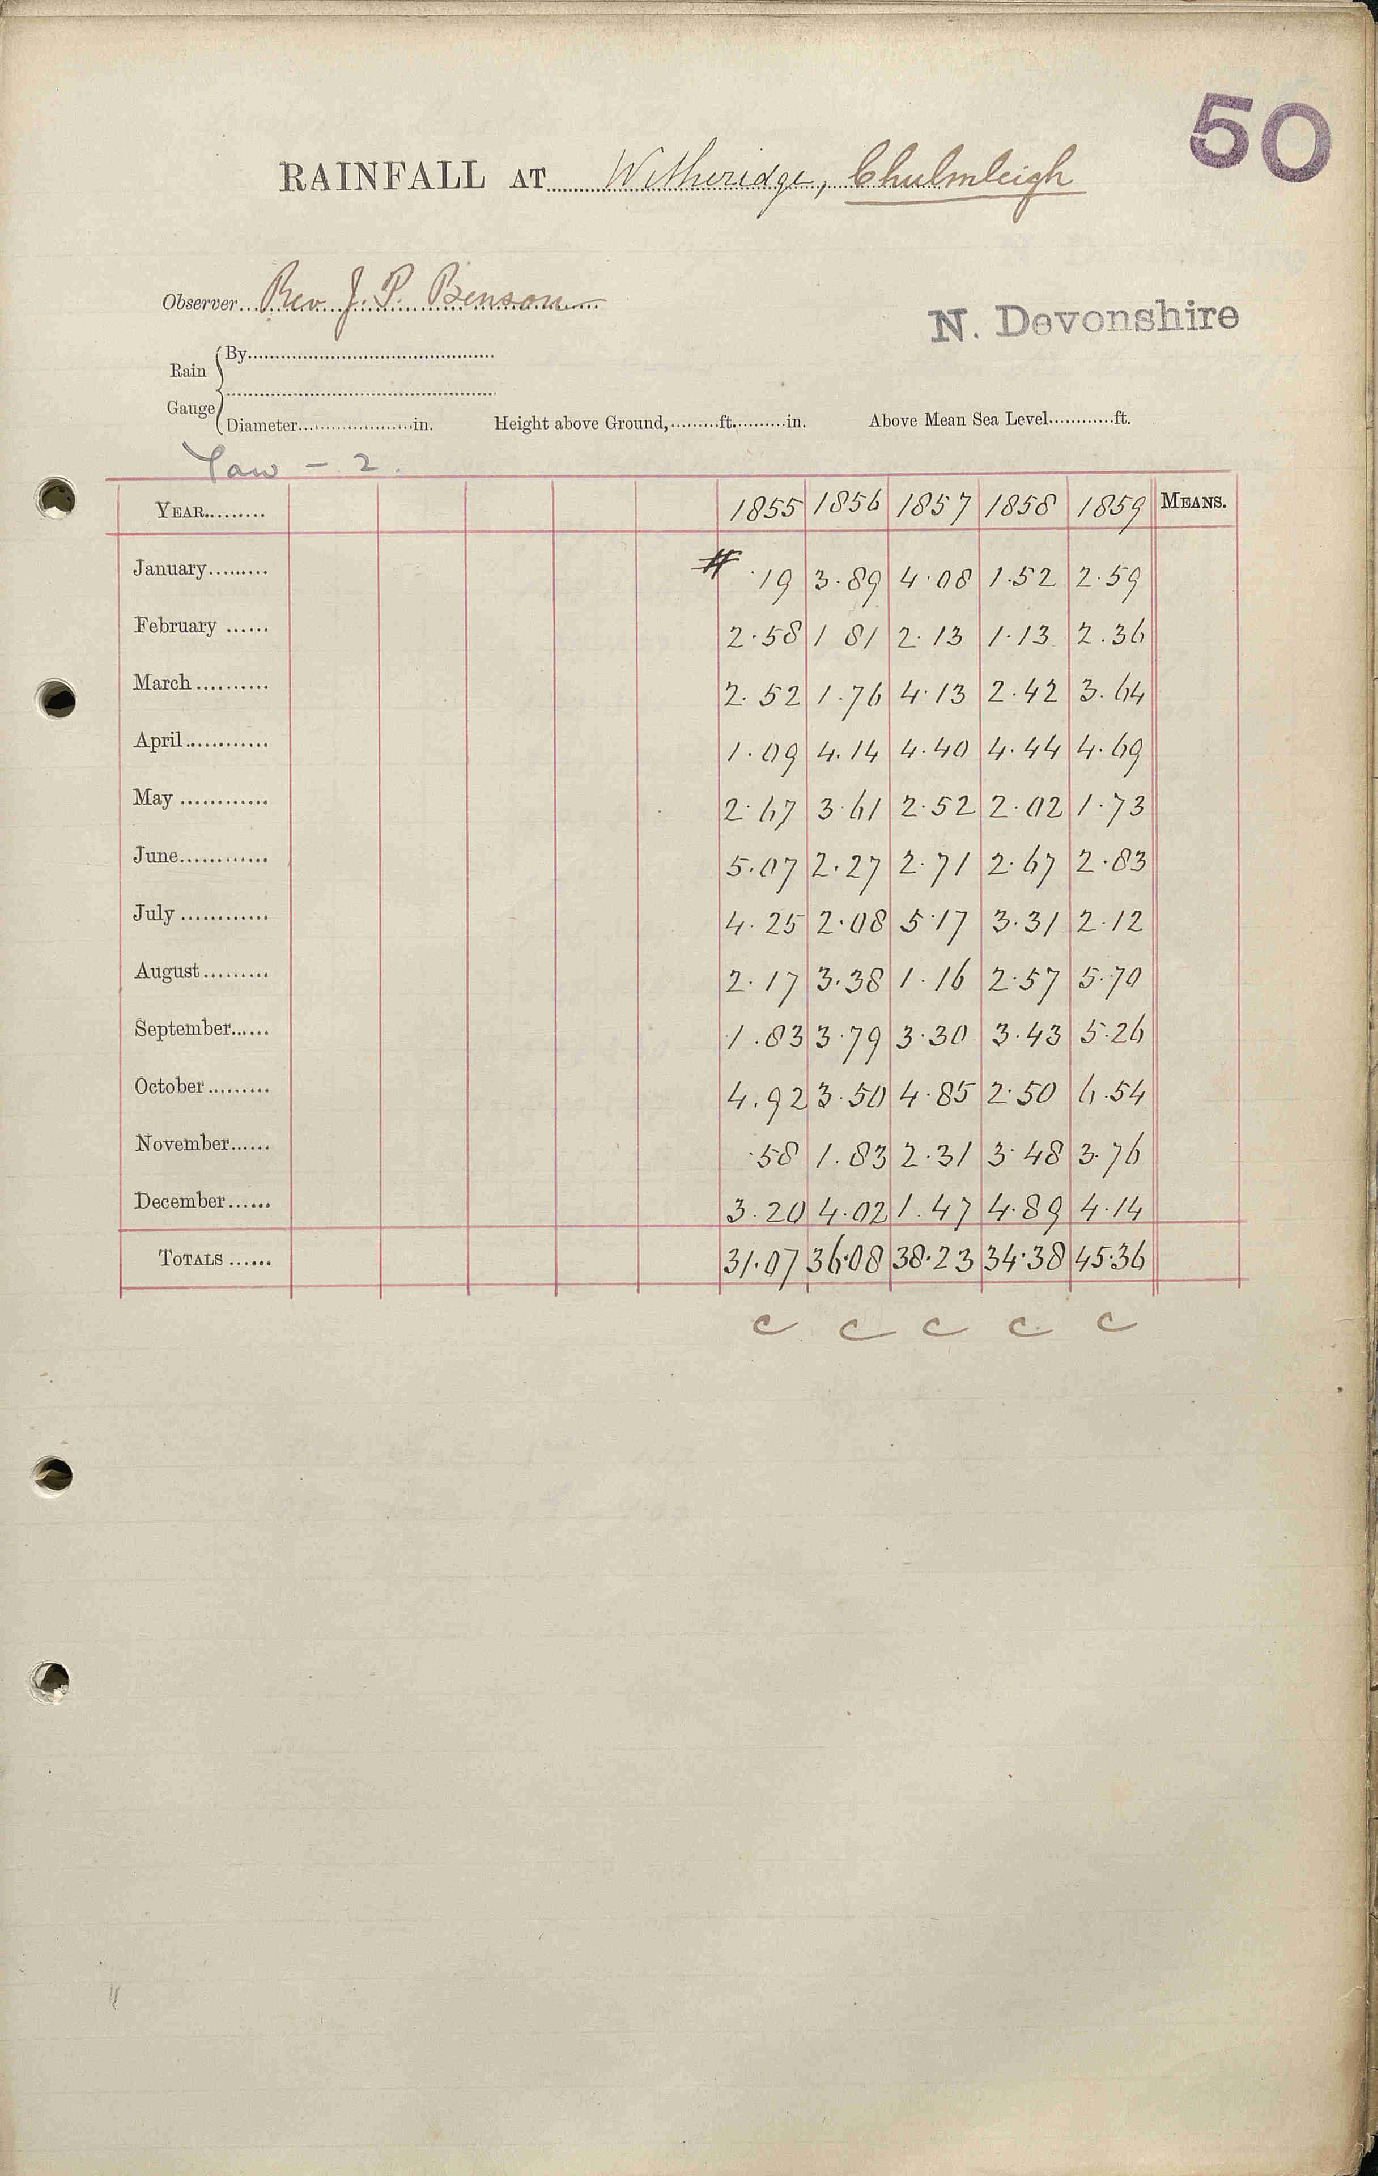 50
RAINFALL AT Witheridge, Chulmleigh
Observer Rev. J. P. Benson
N. Devonshire
Rain Gauge
By
Diameter in. Height above Ground, ft. in. Above Mean Sea Level ft.
Taw - 2.
YEAR 1855 1856 1857 1858 1859 MEANS.
January # .19 3.89 4.08 1.52 2.59
February 2.58 1 81 2.13 1.13 2.36
March 2.52 1.76 4.13 2.42 3.64
April 1.09 4.14 4.40 4.44 4.69
May 2.67 3.61 2.52 2.02 1.73
June 5.07 2.27 2.71 2.67 2.83
July 4.25 2.08 5.17 3.31 2.12
August 2.17 3.38 1.16 2.57 5.70
September 1.83 3.79 3.30 3.43 5.26
October 4.92 3.50 4.85 2.50 6.54
November .58 1.83 2.31 3.48 3.76
December 3.20 4.02 1.47 4.89 4.14
TOTALS 31.07 36.08 38.23 34.38 45.36
c c c c c